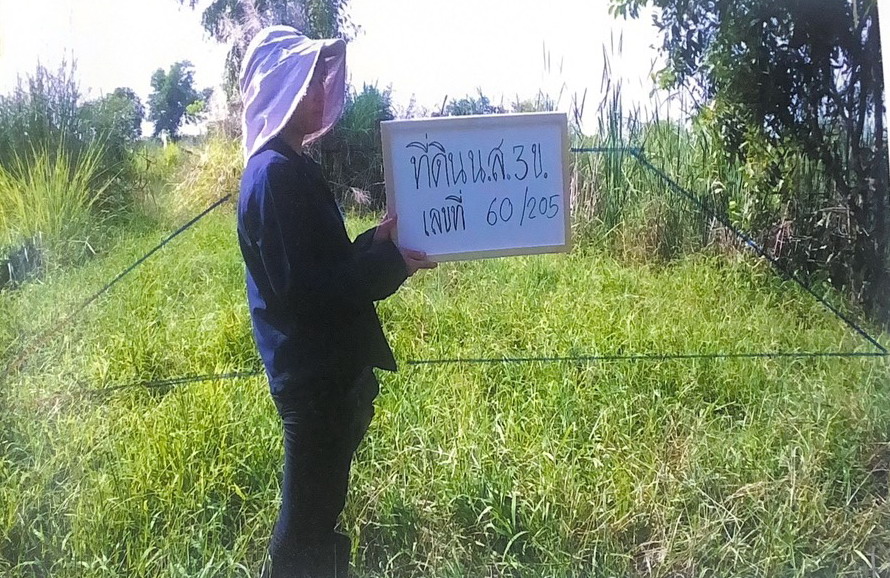 ที่ดินน.ส.3ข.
เลขที่ 60/205